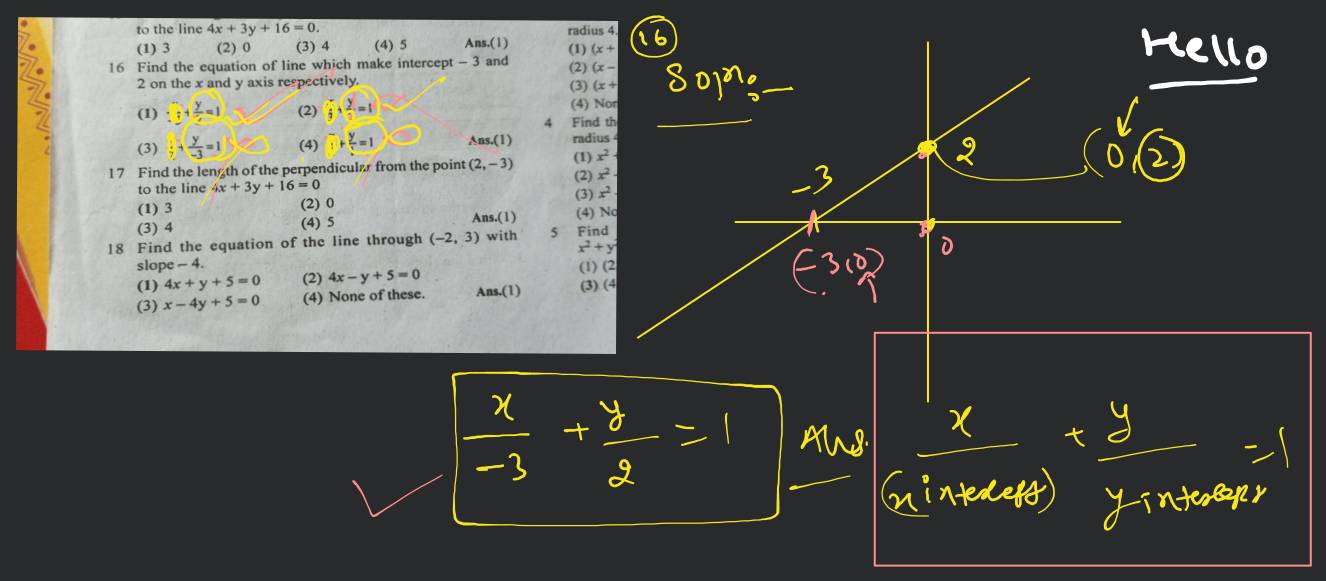 to the line 4x + 3y + 16 = 0.
(1) 3 (2) 0 (3) 4 (4) 5 Ans.(1)
16 Find the equation of line which make intercept – 3 and
2 on the x and y axis respectively.
(1) y =1 (2) y =1
(3) y/3 =1 (4) y =1 Ans.(1)
17 Find the length of the perpendicular from the point (2, – 3)
to the line 4x + 3y + 16 = 0
(1) 3 (2) 0
(3) 4 (4) 5 Ans.(1)
18 Find the equation of the line through (–2, 3) with
slope – 4.
(1) 4x + y + 5 = 0 (2) 4x – y + 5 = 0
(3) x – 4y + 5 = 0 (4) None of these. Ans.(1)
radius 4.
(1) (x +
(2) (x –
(3) (x +
(4) Non
4 Find th
radius
(1) x²
(2) x²
(3) x²
(4) No
5 Find
x² + y
(1) (2
(3) (4
16
Hello
2 (0, 2)
-3
0
(-3, 0)
x/-3 + y/2 = 1 Ans.
x/(x intercept) + y/y-intercept = 1